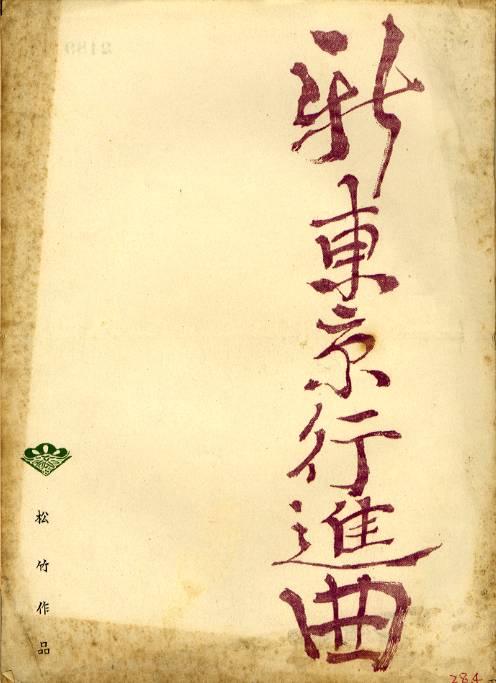 新東京行進曲
松竹作品
284